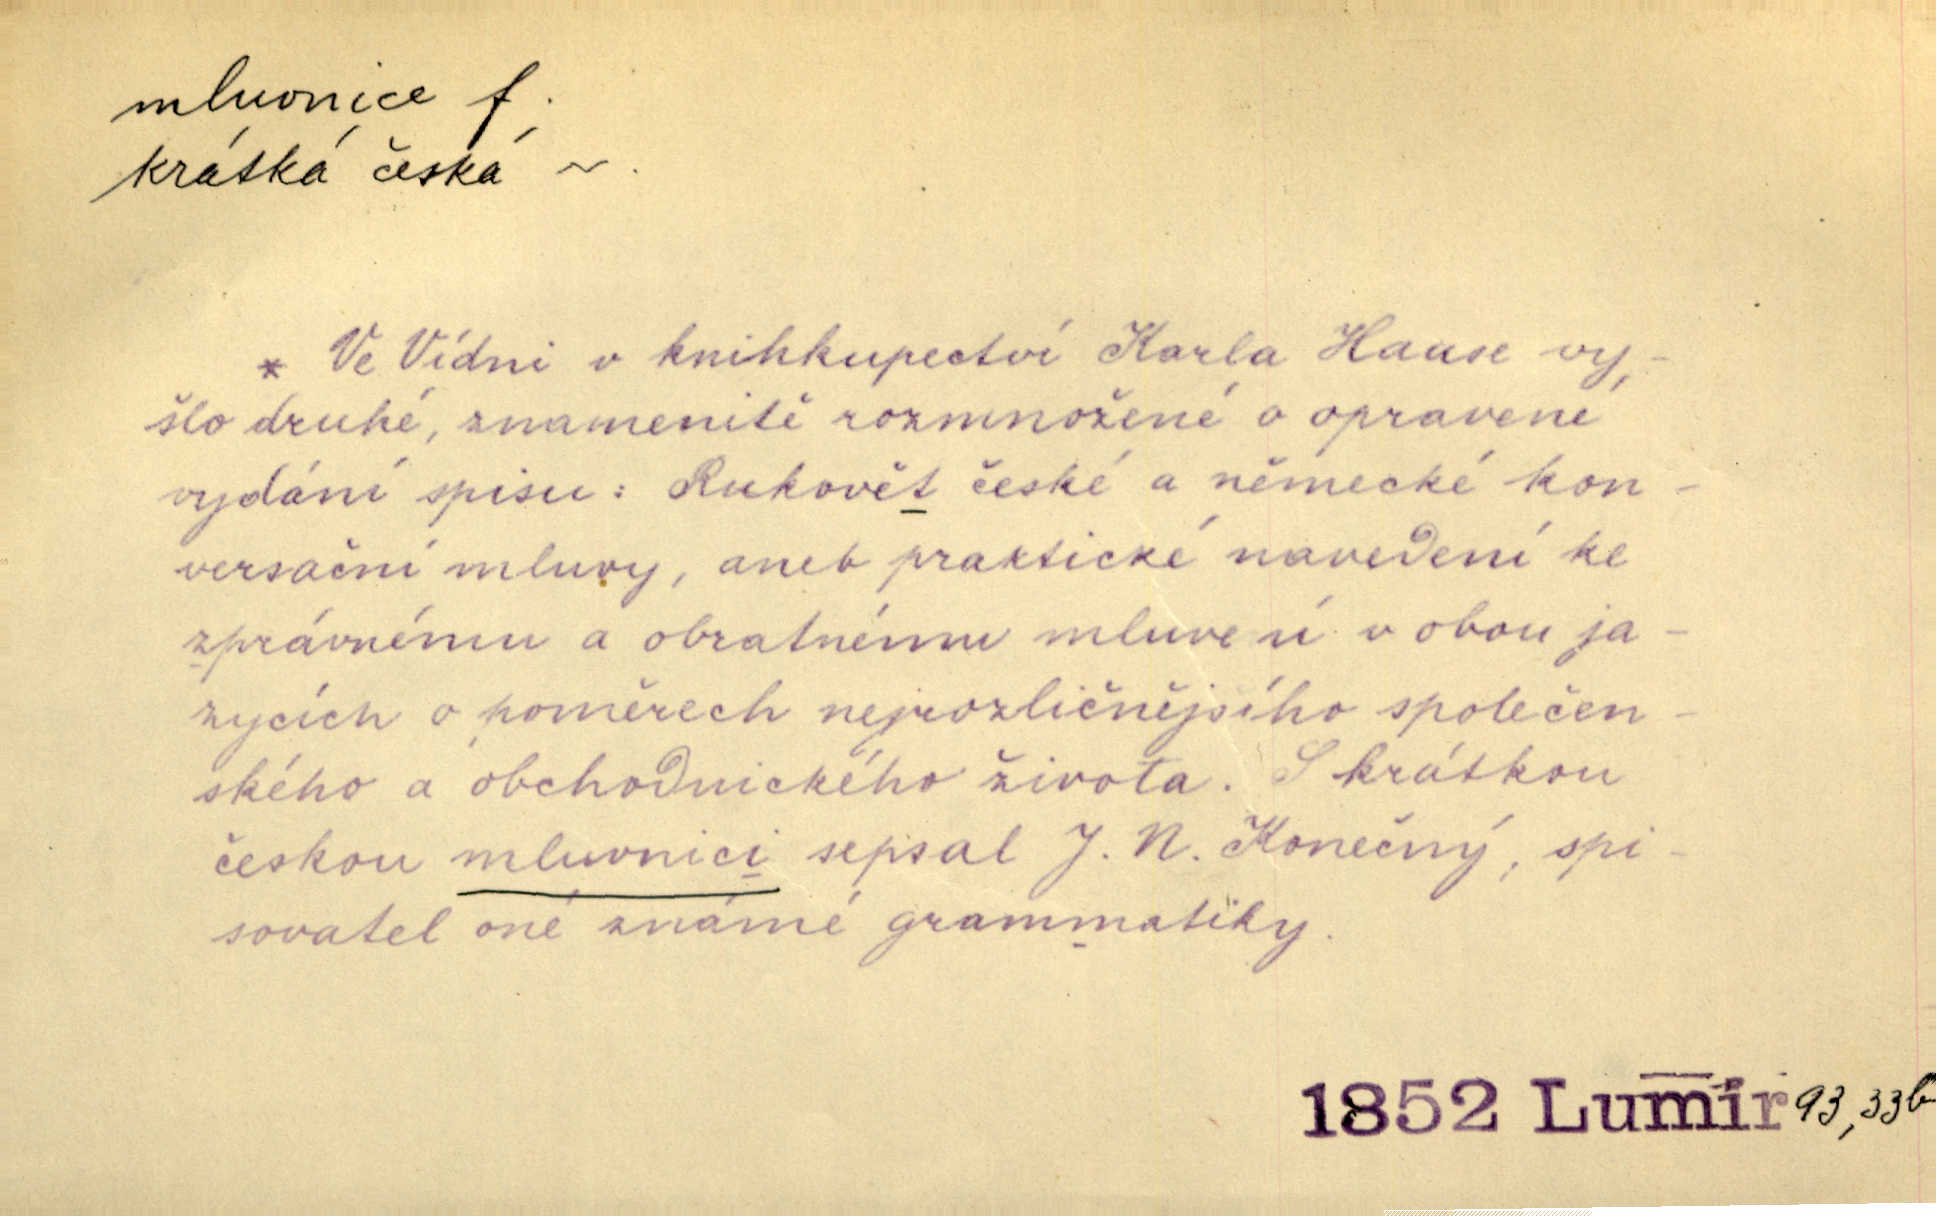 mluvnice f.
krátká česká ~.
* Ve Vídni v knihkupectví Karla Haase vy-
šlo druhé, znamenitě rozmnožené o opravené
vydání spisu: Rukovět české a německé kon-
versační mluvy, aneb praktické navedení ke
zprávnému a obratnému mluvení v obou ja-
zycích o poměrech nejrozličnějšího společen-
ského a obchodnického života. S krátkou
českou mluvnici sepsal J. N. Konečný, spi-
sovatel oné známé grammatiky.
1852 Lumír 93,33b